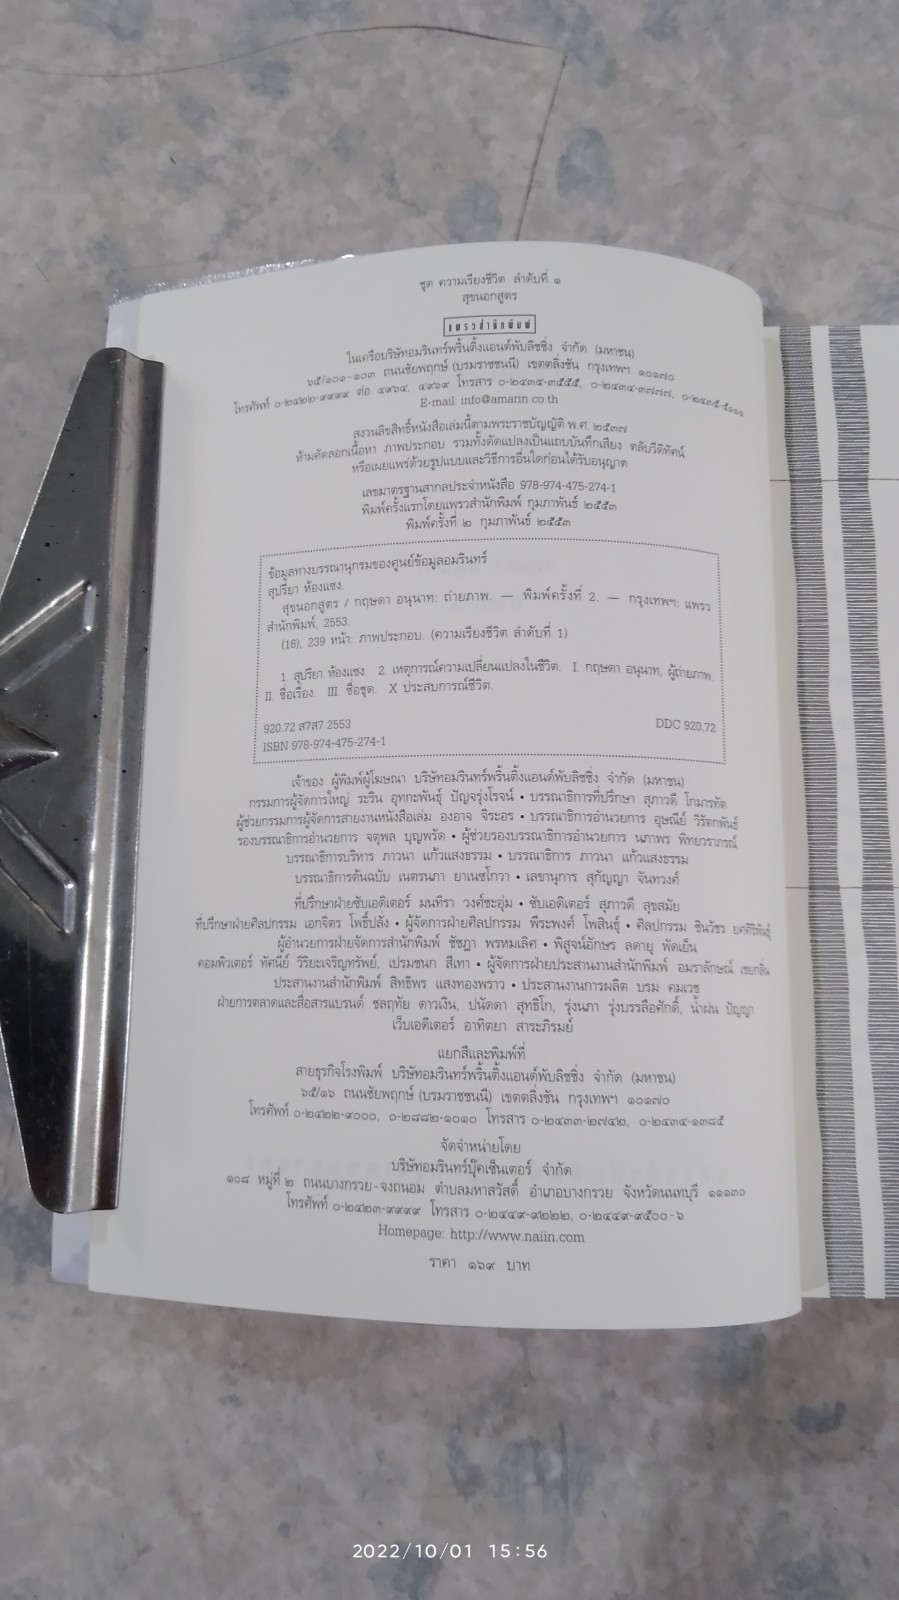 ชุด ความเรียงชีวิต ลำดับที่ ๑
สุขนอกสูตร
แพรวสำนักพิมพ์
ในเครือบริษัทอมรินทร์พริ้นติ้งแอนด์พับลิชชิ่ง จำกัด (มหาชน)
๖๕/๑๐๑-๑๐๓ ถนนชัยพฤกษ์ (บรมราชชนนี) เขตตลิ่งชัน กรุงเทพฯ ๑๐๑๗๐
โทรศัพท์ ๐-๒๔๒๒-๙๙๙๙ ต่อ ๔๙๖๔, ๔๙๖๙ โทรสาร ๐-๒๔๓๔-๓๕๕๕, ๐-๒๔๓๔-๓๗๗๗, ๐-๒๔๓๕-๕๑๑๑
E-mail: info@amarin.co.th
สงวนลิขสิทธิ์หนังสือเล่มนี้ตามพระราชบัญญัติ พ.ศ. ๒๕๓๗
ห้ามคัดลอกเนื้อหา ภาพประกอบ รวมทั้งดัดแปลงเป็นแถบบันทึกเสียง ตลับวีดิทัศน์
หรือเผยแพร่ด้วยรูปแบบและวิธีการอื่นใดก่อนได้รับอนุญาต
เลขมาตรฐานสากลประจำหนังสือ 978-974-475-274-1
พิมพ์ครั้งแรกโดยแพรวสำนักพิมพ์ กุมภาพันธ์ ๒๕๕๓
พิมพ์ครั้งที่ ๒ กุมภาพันธ์ ๒๕๕๓
ข้อมูลทางบรรณานุกรมของศูนย์ข้อมูลอมรินทร์
สุปรียา ห้องแซง.
สุขนอกสูตร / กฤษดา อนุนาท: ถ่ายภาพ. — พิมพ์ครั้งที่ 2. — กรุงเทพฯ: แพรว
สำนักพิมพ์, 2553.
(16), 239 หน้า: ภาพประกอบ. (ความเรียงชีวิต ลำดับที่ 1)
1. สุปรียา ห้องแซง. 2. เหตุการณ์ความเปลี่ยนแปลงในชีวิต. I. กฤษดา อนุนาท, ผู้ถ่ายภาพ.
II. ชื่อเรื่อง. III. ชื่อชุด. X ประสบการณ์ชีวิต.
920.72 ส7ส7 2553 DDC 920.72
ISBN 978-974-475-274-1
เจ้าของ ผู้พิมพ์ผู้โฆษณา บริษัทอมรินทร์พริ้นติ้งแอนด์พับลิชชิ่ง จำกัด (มหาชน)
กรรมการผู้จัดการใหญ่ ระริน อุทกะพันธุ์ ปัญจรุ่งโรจน์ • บรรณาธิการที่ปรึกษา สุภาวดี โกมารทัต
ผู้ช่วยกรรมการผู้จัดการสายงานหนังสือเล่ม องอาจ จิระอร • บรรณาธิการอำนวยการ อุษณีย์ วิรัตกพันธ์
รองบรรณาธิการอำนวยการ จตุพล บุญพรัด • ผู้ช่วยรองบรรณาธิการอำนวยการ นภาพร พิทยวราภรณ์
บรรณาธิการบริหาร ภาวนา แก้วแสงธรรม • บรรณาธิการ ภาวนา แก้วแสงธรรม
บรรณาธิการต้นฉบับ เนตรนภา ยาเนซโกวา • เลขานุการ สุกัญญา จันทวงศ์
ที่ปรึกษาฝ่ายซับเอดิเตอร์ มนทิรา วงศ์ชะอุ่ม • ซับเอดิเตอร์ สุภาวดี สุขสมัย
ที่ปรึกษาฝ่ายศิลปกรรม เอกจิตร โพธิ์ปลั่ง • ผู้จัดการฝ่ายศิลปกรรม พีระพงศ์ โพสินธุ์ • ศิลปกรรม ชินวัชร ยศศิริพันธุ์
ผู้อำนวยการฝ่ายจัดการสำนักพิมพ์ ชัชฎา พรหมเลิศ • พิสูจน์อักษร ลดายุ พัดเย็น
คอมพิวเตอร์ ทัศนีย์ วิริยะเจริญทรัพย์, เปรมชนก สีเทา • ผู้จัดการฝ่ายประสานงานสำนักพิมพ์ อมราลักษณ์ เชยกลิ่น
ประสานงานสำนักพิมพ์ สิทธิพร แสงทองพราว • ประสานงานการผลิต บรม คมเวช
ฝ่ายการตลาดและสื่อสารแบรนด์ ชลฤทัย ดาวเงิน, ปนัดดา สุทธิโก, รุ่งนภา รุ่งบรรลือศักดิ์, น้ำฝน ปัญญา
เว็บเอดิเตอร์ อาทิตยา สาระภิรมย์
แยกสีและพิมพ์ที่
สายธุรกิจโรงพิมพ์ บริษัทอมรินทร์พริ้นติ้งแอนด์พับลิชชิ่ง จำกัด (มหาชน)
๖๕/๑๖ ถนนชัยพฤกษ์ (บรมราชชนนี) เขตตลิ่งชัน กรุงเทพฯ ๑๐๑๗๐
โทรศัพท์ ๐-๒๔๒๒-๙๐๐๐, ๐-๒๘๘๒-๑๐๑๐ โทรสาร ๐-๒๔๓๓-๒๗๔๒, ๐-๒๔๓๔-๑๓๘๕
จัดจำหน่ายโดย
บริษัทอมรินทร์บุ๊คเซ็นเตอร์ จำกัด
๑๐๘ หมู่ที่ ๒ ถนนบางกรวย-จงถนอม ตำบลมหาสวัสดิ์ อำเภอบางกรวย จังหวัดนนทบุรี ๑๑๑๓๐
โทรศัพท์ ๐-๒๔๒๓-๙๙๙๙ โทรสาร ๐-๒๔๔๙-๙๒๒๒, ๐-๒๔๔๙-๙๕๐๐-๖
Homepage: http://www.naiin.com
ราคา ๑๖๙ บาท
2022/10/01 15:56